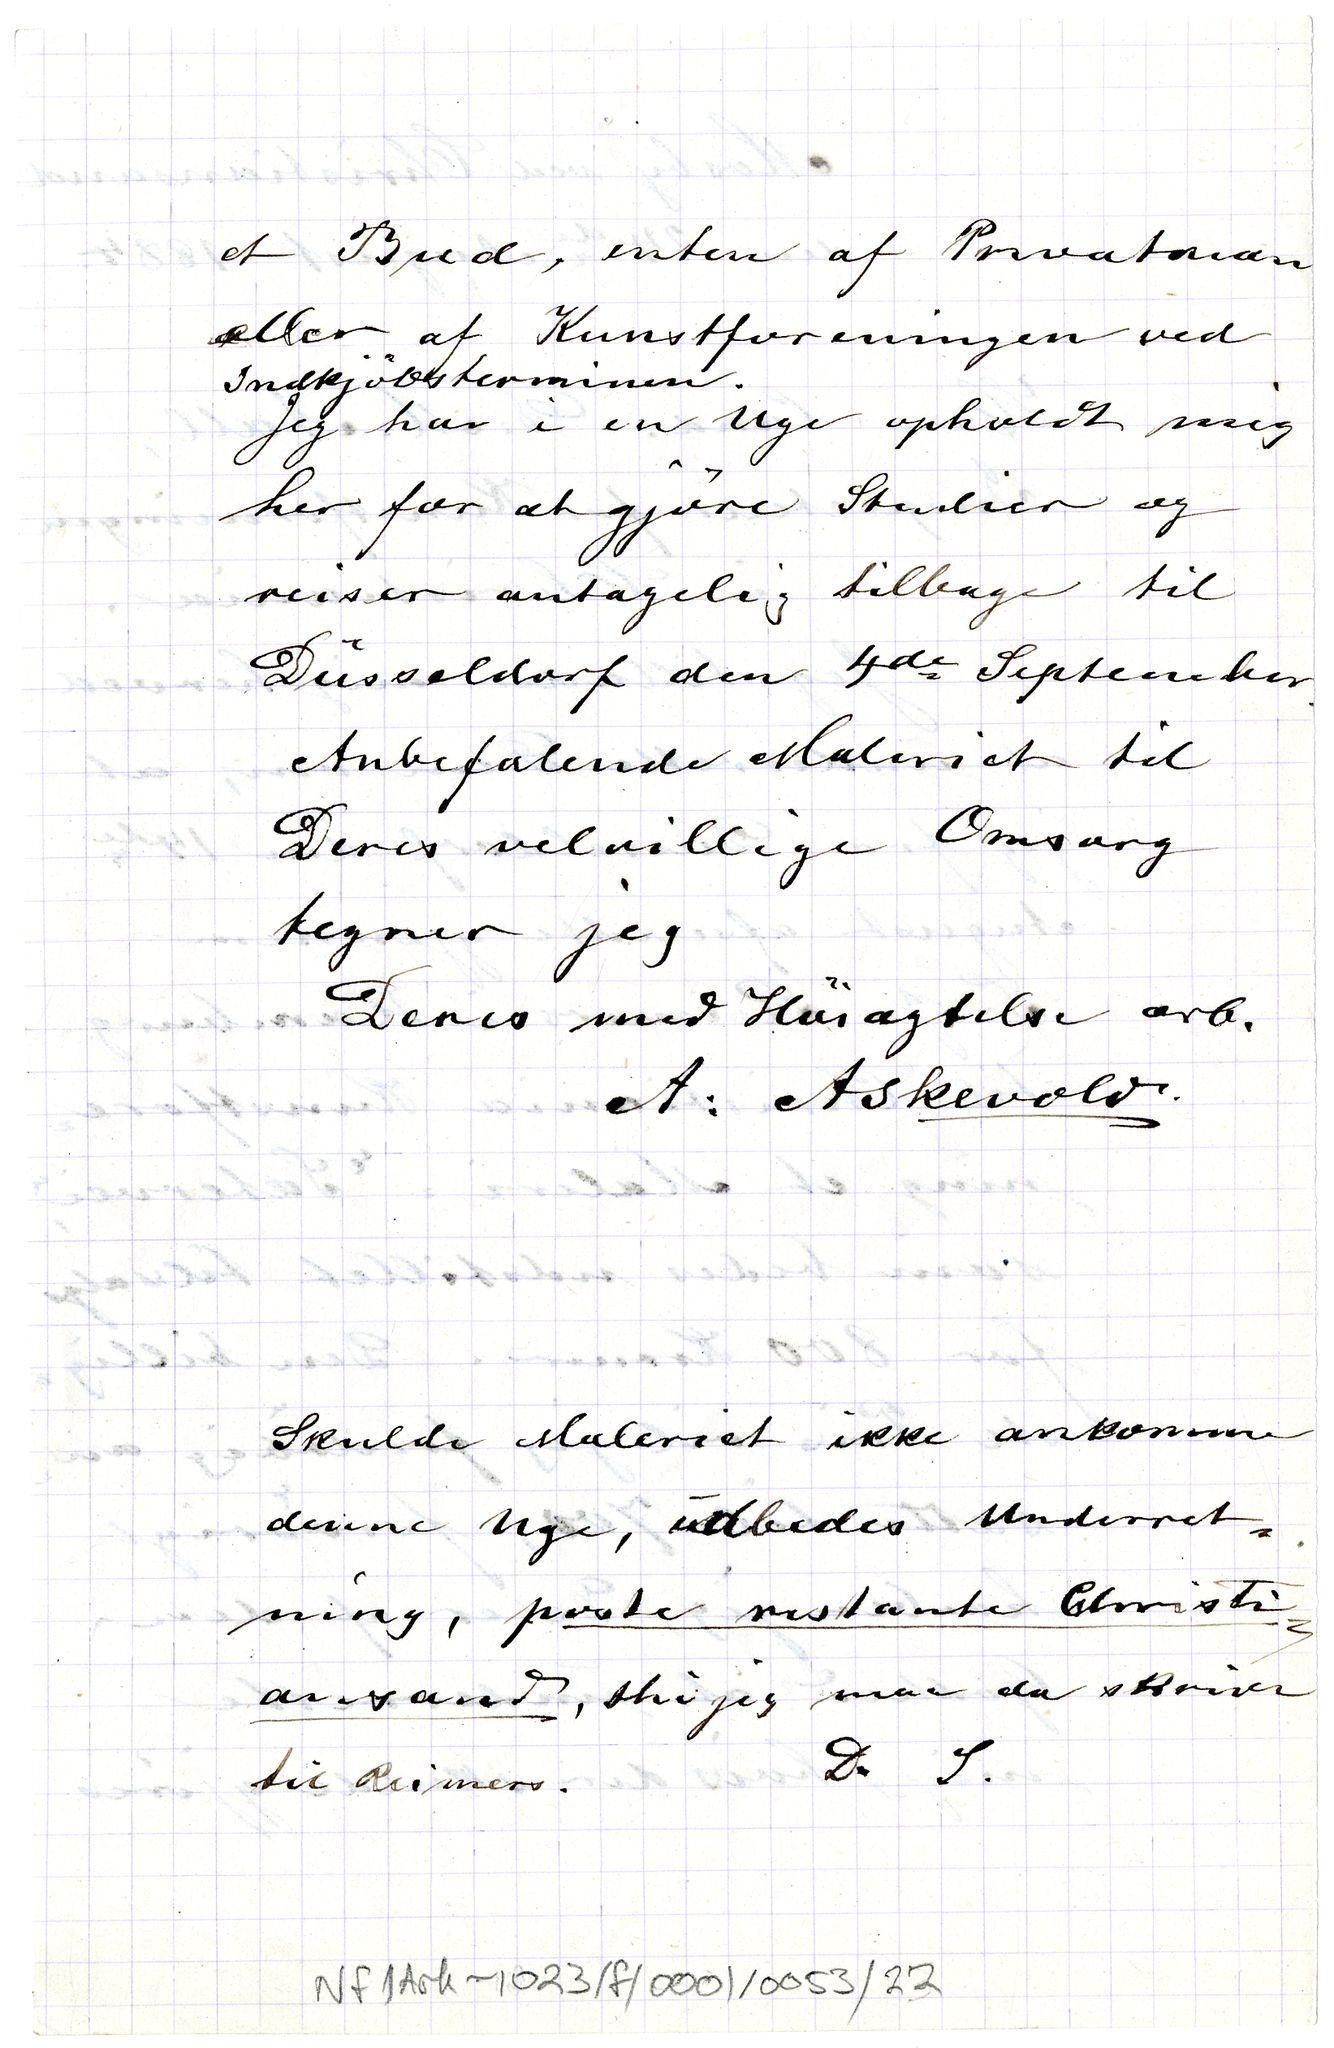 et Bud, enten af Privatman
eller af Kunstforeningen ved
Indkjöbsterminen.
Jeg har i en Uge opholdt mig
her for at gjöre Studier og
reiser antagelig tilbage til
Düsseldorf den 4de September.
Anbefalende Maleriet til
Deres velvillige Omsorg
tegner jeg
Deres med Höiagtelse erb.
A: Askevold.
Skulde Maleriet ikke ankomme
denne Uge, udbedes Underret=
ning, poste restante Christi=
ansand, thi jeg maa da skrive
til Reimers. D. S.
NF1Ark-1023/f/0001/0053/22